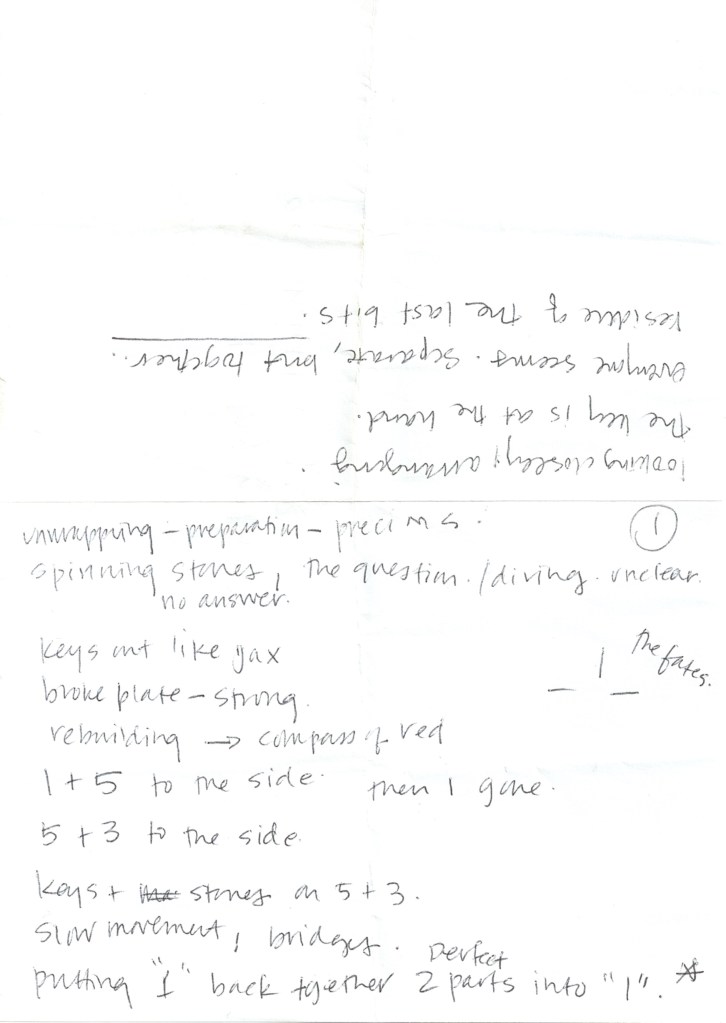 unwrapping – preparation – precious.
①
spinning stones, the question./diving. unclear.
no answer.
keys out like jax
the fates.
broke plate – strong.
rebuilding → compass of red
1 + 5 to the side. then 1 gone.
5 + 3 to the side.
keys + stones on 5 + 3.
slow movement, bridges.
perfect
putting "1" back together 2 parts into "1". *
looking closely; arranging.
the key is at the hand.
everyone seems. separate, but together.
residue of the last bits.